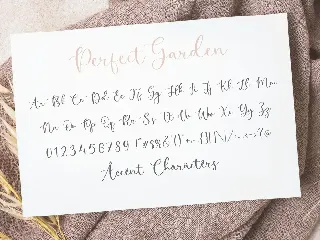 Perfect Garden
Aa Bb Cc Dd Ee Ff Gg Hh Ii Jj Kk Ll Mm
Nn Oo Pp Qq Rr Ss Tt Uu Vv Ww Xx Yy Zz
0123456789
Accent Characters